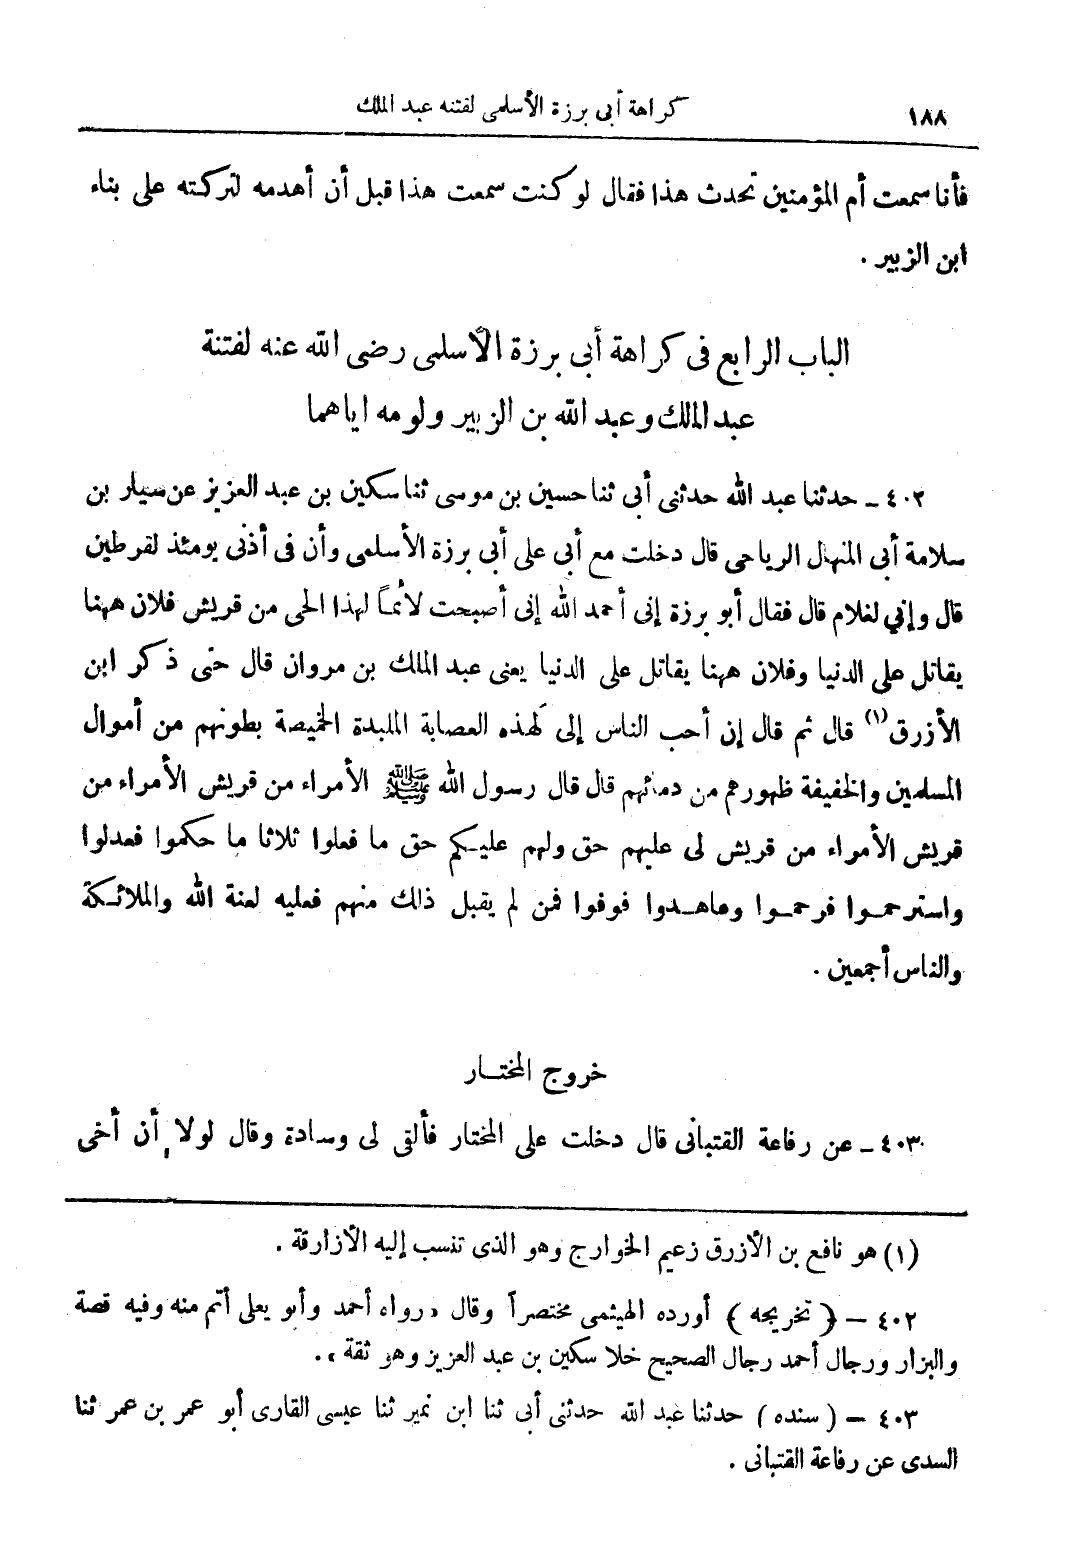 ١٨٨ كراهة أبى برزة الأسلمى لفتنه عبد الملك
فأنا سمعت أم المؤمنين تحدث هذا فقال لو كنت سمعت هذا قبل أن أهدمه لتركته على بناء
ابن الزبير .
الباب الرابع فى كراهة أبى برزة الأسلمى رضى الله عنه لفتنة
عبد الملك وعبد الله بن الزبير ولومه اياهما
٤٠٢ ـ حدثنا عبد الله حدثنى أبى ثنا حسين بن موسى ثنا سكين بن عبد العزيز عن سيار بن
سلامة أبى المنهال الرياحى قال دخلت مع أبى على أبى برزة الأسلمى وأن فى أذنى يومئذ لقرطين
قال وإنى لغلام قال فقال أبو برزة إنى أحمد الله إنى أصبحت لائماً لهذا الحى من قريش فلان ههنا
يقاتل على الدنيا وفلان ههنا يقاتل على الدنيا يعنى عبد الملك بن مروان قال حتى ذكر ابن
الأزرق (١) قال ثم قال إن أحب الناس إلى لهذه العصابة الملبدة الخميصة بطونهم من أموال
المسلمين والخفيفة ظهورهم من دمائهم قال قال رسول الله ﷺ الأمراء من قريش الأمراء من
قريش الأمراء من قريش لى عليهم حق ولهم عليكم حق ما فعلوا ثلاثا ما حكموا فعدلوا
واسترحموا فرحموا وعاهدوا فوفوا فمن لم يقبل ذلك منهم فعليه لعنة الله والملائكة
والناس أجمعين .
خروج المختار
٤٠٣ ـ عن رفاعة القتبانى قال دخلت على المختار فألقى لى وسادة وقال لولا أن أخى
(١) هو نافع بن الأزرق زعيم الخوارج وهو الذى تنسب إليه الأزارقة .
٤٠٢ — ( تخريجه ) أورده الهيثمى مختصراً وقال « رواه أحمد وأبو يعلى أتم منه وفيه قصة
والبزار ورجال أحمد رجال الصحيح خلا سكين بن عبد العزيز وهو ثقة » .
٤٠٣ — ( سنده ) حدثنا عبد الله حدثنى أبى ثنا ابن نمير ثنا عيسى القارى أبو عمر بن عمر ثنا
السدى عن رفاعة القتبانى .